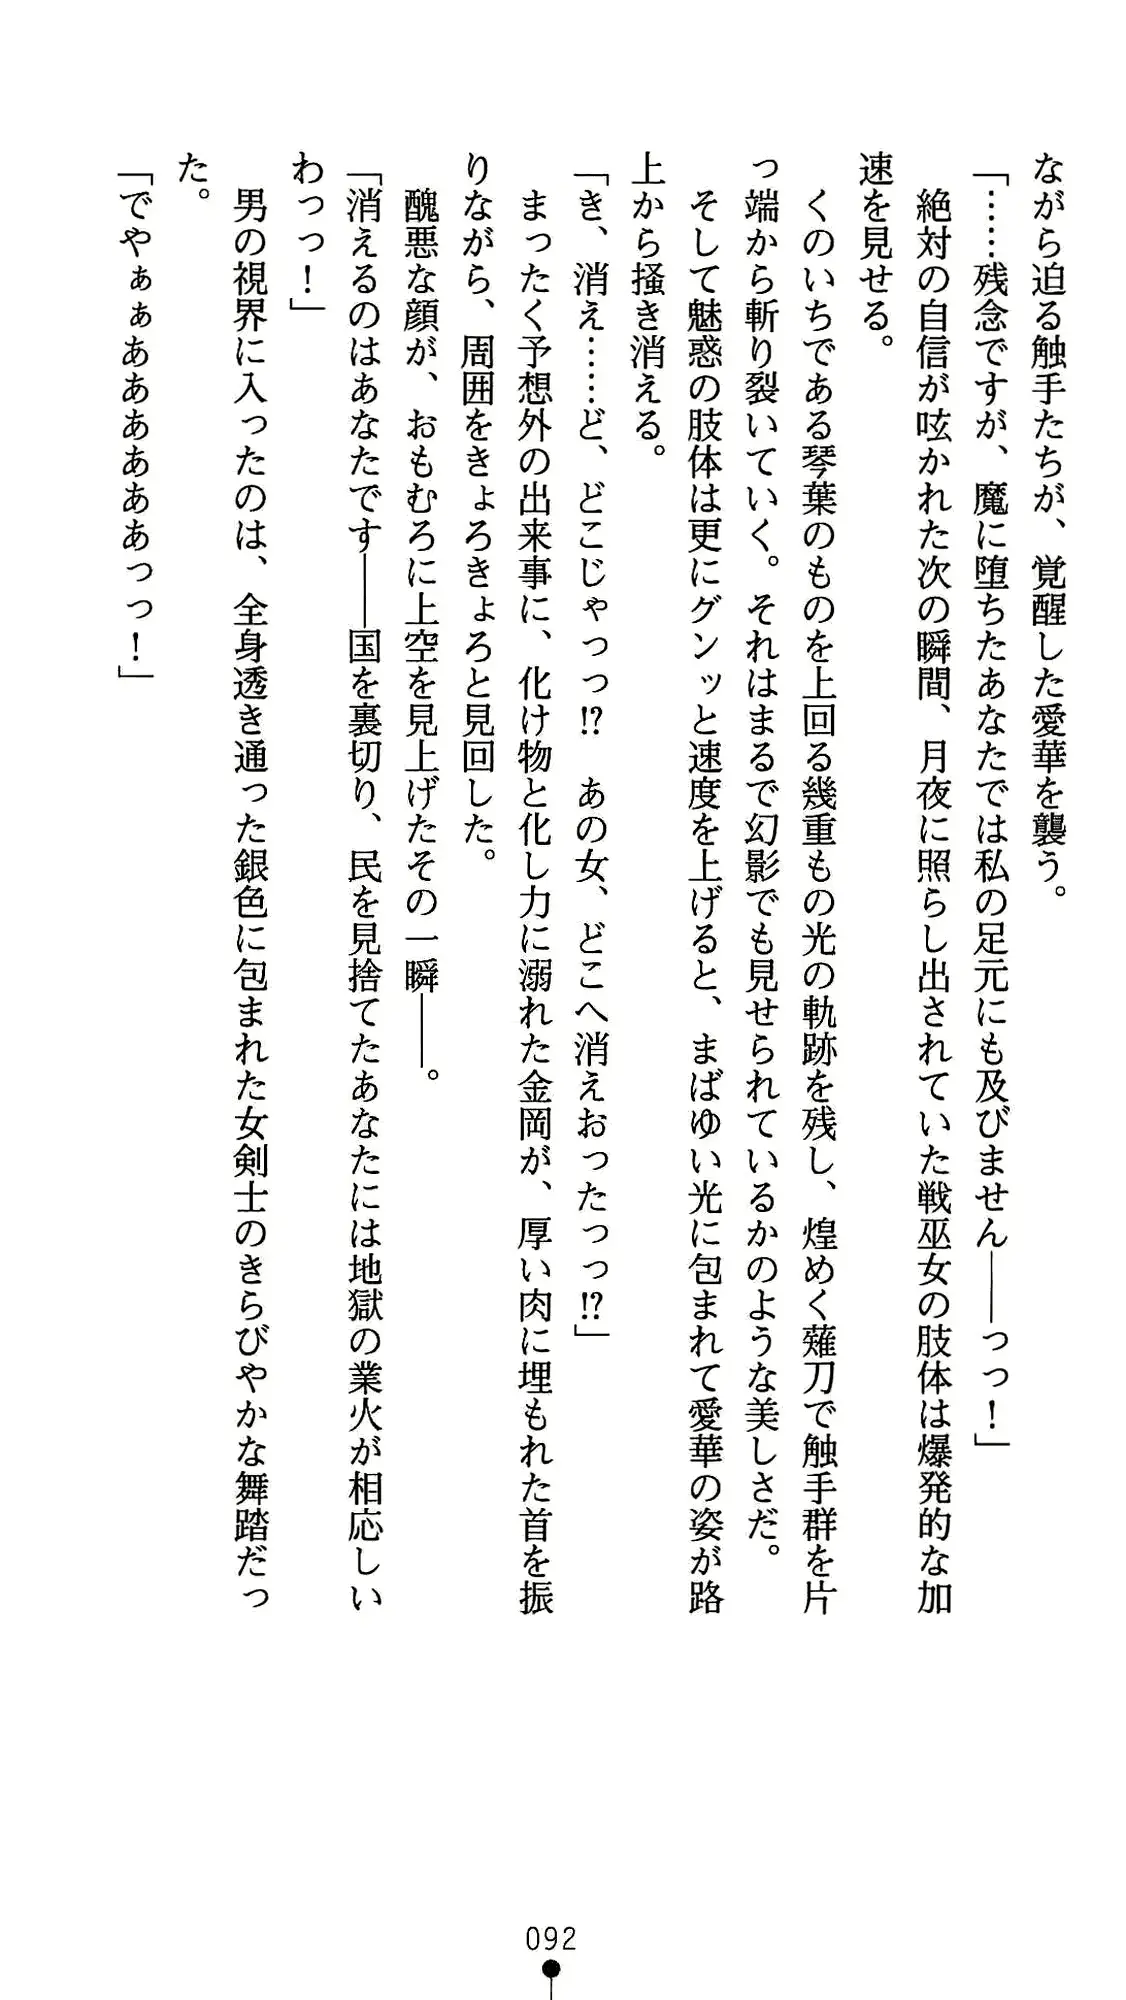 ながら迫る触手たちが、覚醒した愛華を襲う。
「……残念ですが、魔に堕ちたあなたでは私の足元にも及びません――っっ！」
　絶対の自信が呟かれた次の瞬間、月夜に照らし出されていた戦巫女の肢体は爆発的な加
速を見せる。
　くのいちである琴葉のものを上回る幾重もの光の軌跡を残し、煌めく薙刀で触手群を片
っ端から斬り裂いていく。それはまるで幻影でも見せられているかのような美しさだ。
　そして魅惑の肢体は更にグンッと速度を上げると、まばゆい光に包まれて愛華の姿が路
上から掻き消える。
「き、消え……ど、どこじゃっっ⁉　あの女、どこへ消えおったっっ⁉」
　まったく予想外の出来事に、化け物と化し力に溺れた金岡が、厚い肉に埋もれた首を振
りながら、周囲をきょろきょろと見回した。
　醜悪な顔が、おもむろに上空を見上げたその一瞬――。
「消えるのはあなたです――国を裏切り、民を見捨てたあなたには地獄の業火が相応しい
わっっ！」
　男の視界に入ったのは、全身透き通った銀色に包まれた女剣士のきらびやかな舞踏だっ
た。
「でやぁぁああああああっっ！」
092